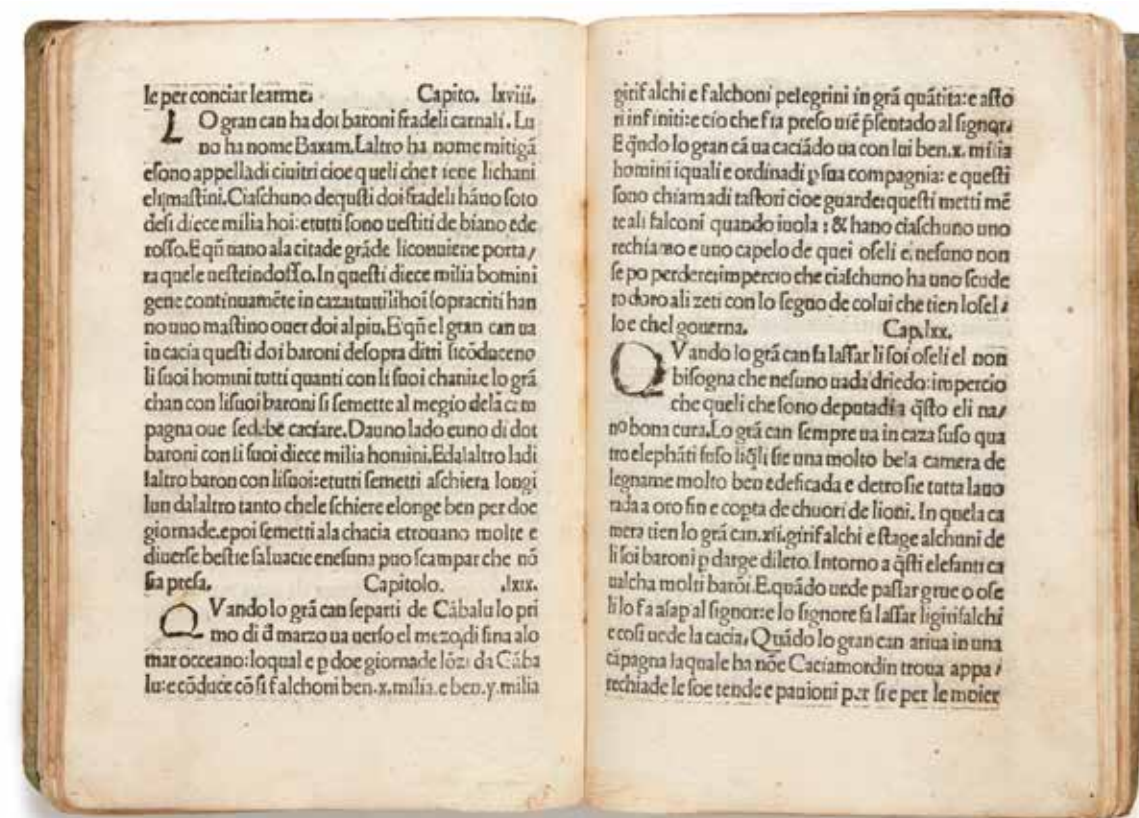 le per conciar learme. Capito. lxviii.
LO gran can ha doi baroni fradeli carnali. Lu
no ha nome Baxam. Laltro ha nome mitigā
esono appelladi ciuitri cioe queli che tiene lichani
elimastini. Ciaschuno dequsti doi fradeli hāno soto
desi diece milia hoi: etutti sono uestiti de biano ede
rosso. E qñ uano ala citade grāde liconuiene porta/
ra quele uesteindosso. In questi diece milia homini
gene continuamēte in caza: tutti lihoi sopracriti han
no uno mastino ouer doi alpiu. E qñ el gran can ua
in cacia questi doi baroni desopra ditti sicōduceno
li suoi homini tutti quanti con li suoi chani: e lo grā
chan con lisuoi baroni si semette al megio delā cam
pagna oue sedebe caciare. Dauno lado euno di doi
baroni con li suoi diece milia homini. Edalaltro ladi
laltro baron con lisuoi: etutti semetti aschiera longi
lun dalaltro tanto chele schiere elonge ben per doe
giornade. e poi semetti ala chacia etrouano molte e
diuerse bestie saluacie enesuna puo scampar che nō
sia presa. Capitolo. .lxix.
QVando lo grā can separti de Cābalu lo pri
mo di đ marzo ua uerso el mezo di sina alo
mar occeano: loqual e p doe giornade lōzi da Cāba
lu: e cōduce cō si falchoni ben .x. milia. e ben .y. milia
girifalchi e falchoni pelegrini in grā quātita: e asto
ri infiniti: e cio che sia preso uiē p̄sentado al signor.
E qñdo lo gran cā ua caciādo ua con lui ben .x. milia
homini iquali e ordinadi p sua compagnia: e questi
sono chiamadi tastori cioe guarde: questi metti mē
te ali falconi quando iuola : & hano ciaschuno uno
rechiamo e uno capelo de quei oseli e nesuno non
se po perdere: impercio che ciaschuno ha uno scude
to doro ali zeti con lo segno de colui che tien losel/
lo e chel gouerna. Cap. lxx.
QVando lo grā can fa lassar li soi oseli el non
bisogna che nesuno uada driedo: impercio
che queli che sono deputadi a q̄sto eli na/
no bona cura. Lo grā can sempre ua in caza suso qua
tro elephāti suso liq̄li sie una molto bela camera de
legname molto ben edeficada e detro sie tutta lauo
rada a oro fin e copta de chuori de lioni. In quela ca
mera tien lo grā can .xii. girifalchi e stage alchuni de
li soi baroni p darge dileto. Intorno a q̄sti elefanti ca
ualcha molti barōi. E quādo uede passar grue o ose
li lo fa asap al signor: e lo signore fa lassar ligirifalchi
e cosi uede la cacia. Quādo lo gran can ariua in una
cāpagna laquale ha nōe Caciamordin troua appa/
rechiade le soe tende e pauioni per si e per le moier